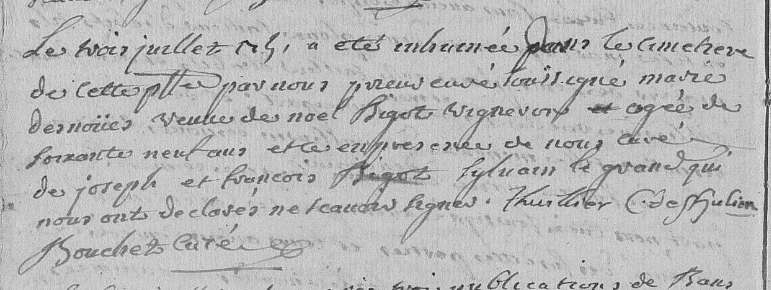 Le trois juillet 1751 a eté inhumée dans le Cimetiere
de Cette psse par nous prieur curé soussigné marie
desnoües veuve de noel Bigot vigneron et agée de
soixante neuf ans et ce en presence de nous curé
de joseph et francois Bigot sylvain le grand qui
nous ont declarés ne scavoir signer. Thuillier C. de St Julien
Bouchet Curé
publications de Bans